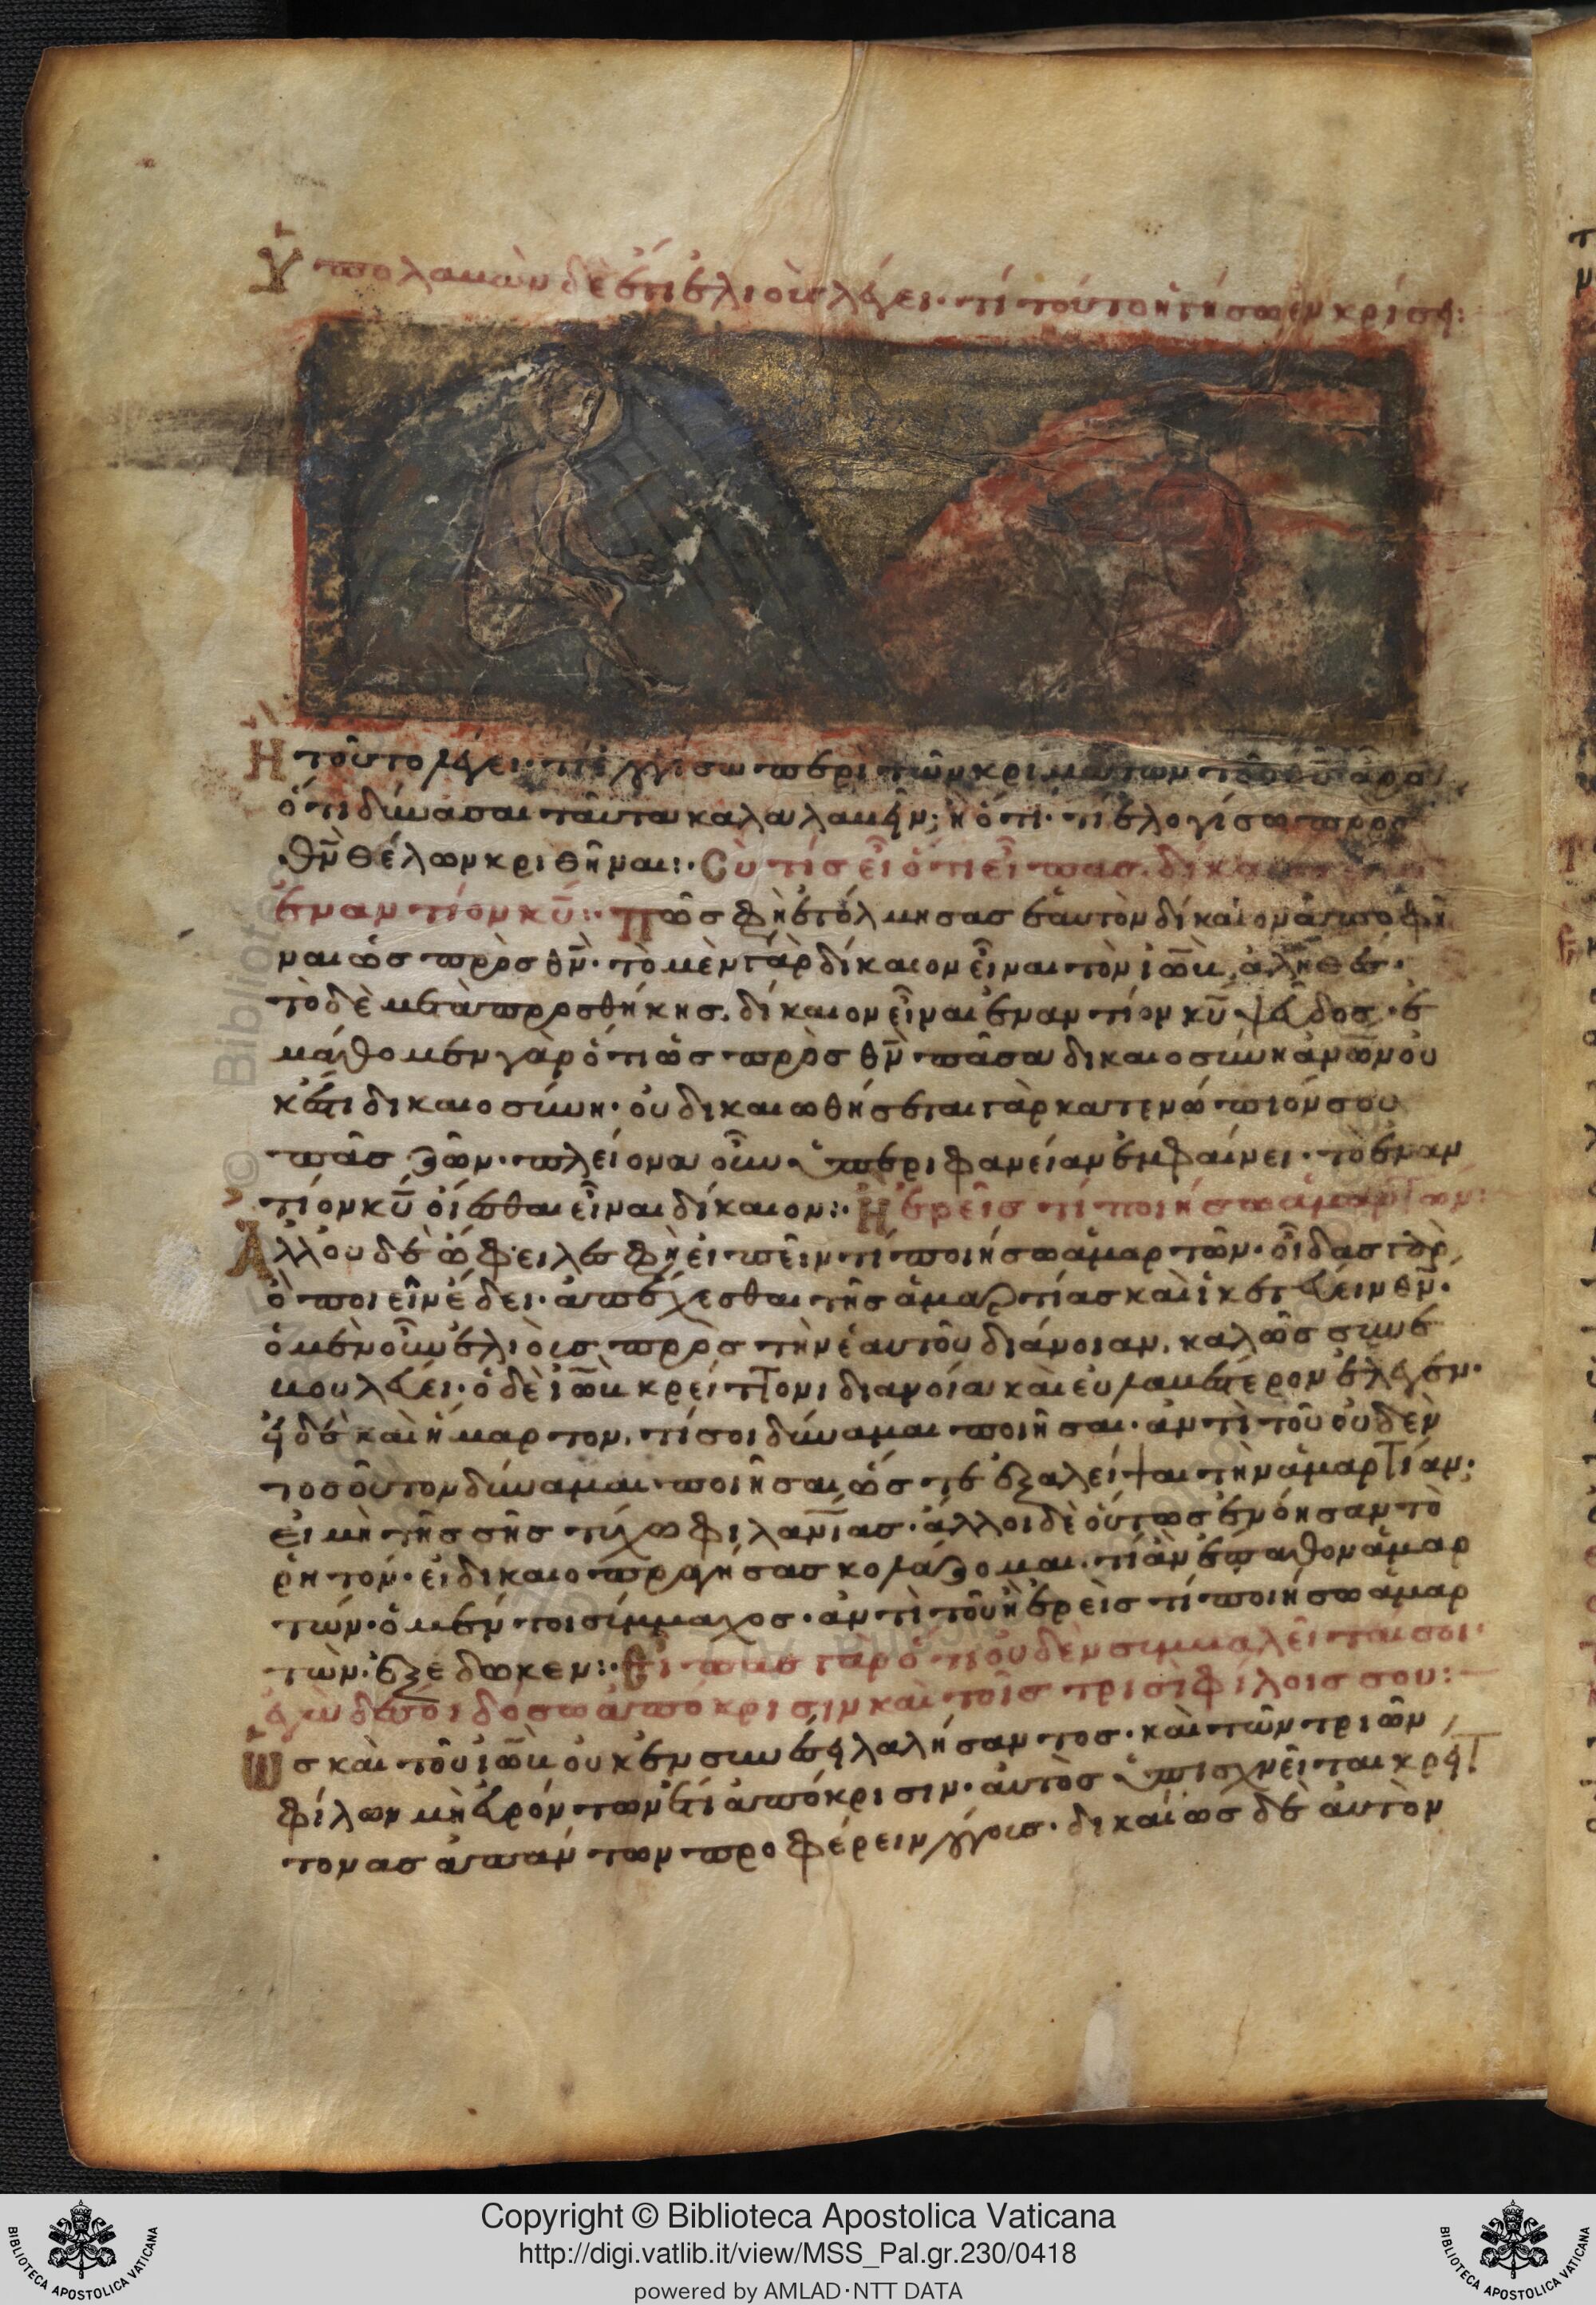 Ὑπολαβὼν δὲ ἔτι ἐλιοὺς λέγει· τί τοῦτο ἡγήσω ἐν κρίσει:
Ἢ τοῦτο λέγει· τί ἡγήσω περὶ τῶν κριμάτων τοῦ θῦ ἆρα
ὅτι δύνασαι ταῦτα καταλαβεῖν; ἢ ὅτι· τί ἐλογίσω πρὸς
θν̅ θέλων κριθῆναι:· Σὺ τίς εἶ ὅτι εἶπας
ἐναντίον κυ̅:· Πῶς φησὶ ἐτόλμησας ἑαυτὸν δίκαιον ἀποφῆ
ναι ὡς πρὸς θν̅· τὸ μὲν γὰρ δίκαιον εἶναι τὸν ἰὼβ, ἀληθές·
τὸ δὲ μετὰ προσθήκης, δίκαιον εἶναι ἐναντίον κυ̅ ψεῦδος· ἐ
μάθομεν γὰρ ὅτι ὡς πρὸς θν̅ πᾶσα δικαιοσύνη ἀνω̅ν οὐ
κέτι δικαιοσύνη· οὐ δικαιωθήσεται γὰρ κατενώπιόν σου
πᾶς ζῶν· πλείονα οὖν ὑπεριφανείαν ἐμφαίνει· τὸ ἐναν
τίον κυ̅ οἴεσθαι εἶναι δίκαιον:· Ἢ ἐρεῖς τί ποιήσω ἁμαρτών:
Ἀλλ' οὐδὲ ὤφειλε φησὶ εἰπεῖν τί ποιήσω ἁμαρτῶν· οἶδας γὰρ
ὃ ποιεῖν ἔδει· ἀπέχεσθαι τῆς ἁμαρτίας καὶ ἱκετεύειν θν̅·
ὁ μὲν οὖν ἐλιοὺς πρὸς τὴν ἑαυτοῦ διάνοιαν, καλῶς συνε
βούλευει· ὁ δὲ ἰὼβ κρείττονι διανοία καὶ εὐλαβέστερον ἔλεγεν·
εἰ δὲ καὶ ἥμαρτον, τί σοι δύναμαι ποιῆσαι· ἀντὶ τοῦ οὐδὲν
τοσοῦτον δύναμαι ποιῆσαι ὥς τε ἐξαλεῖψαι τὴν ἁμαρτίαν·
εἰ μὴ τῆς σῆς τύχω φιλαν̅ίας· ἄλλοι δὲ οὕτως ἐνόησαν τὸ
ῥητόν· εἰ δικαιοπραγήσας κολάζομαι· τί ἂν ἔπαθον ἁμαρ
τών· ὁ μέν τοι σύμμαχος· ἀντὶ τοῦ ἢ ἐρεῖς τί ποιήσω ἁμαρ
τὼν· ἐξέδωκεν:· Εἶπας γὰρ ὅτι οὐδὲν συμβαλεῖται σοι·
ἐγὼ δέ σοι δώσω ἀπόκρισιν καὶ τοῖς τρισὶ φίλοις σου:
Ὡς καὶ τοῦ ἰὼβ οὐκ ἐν συνέσει λαλήσαντος· καὶ τῶν τριῶν
φίλων μὴ εὑρόντων ἔτι ἀπόκρισιν· αὐτὸς ὑπισχνεῖται κρείτ
τονας ἁπάντων προφέρειν λόγους· δικαίως δὲ αὐτὸν
Copyright © Biblioteca Apostolica Vaticana
http://digi.vatlib.it/view/MSS_Pal.gr.230/0418
powered by AMLAD·NTT DATA
BIBLIOTECA APOSTOLICA VATICANA
BIBLIOTECA APOSTOLICA VATICANA